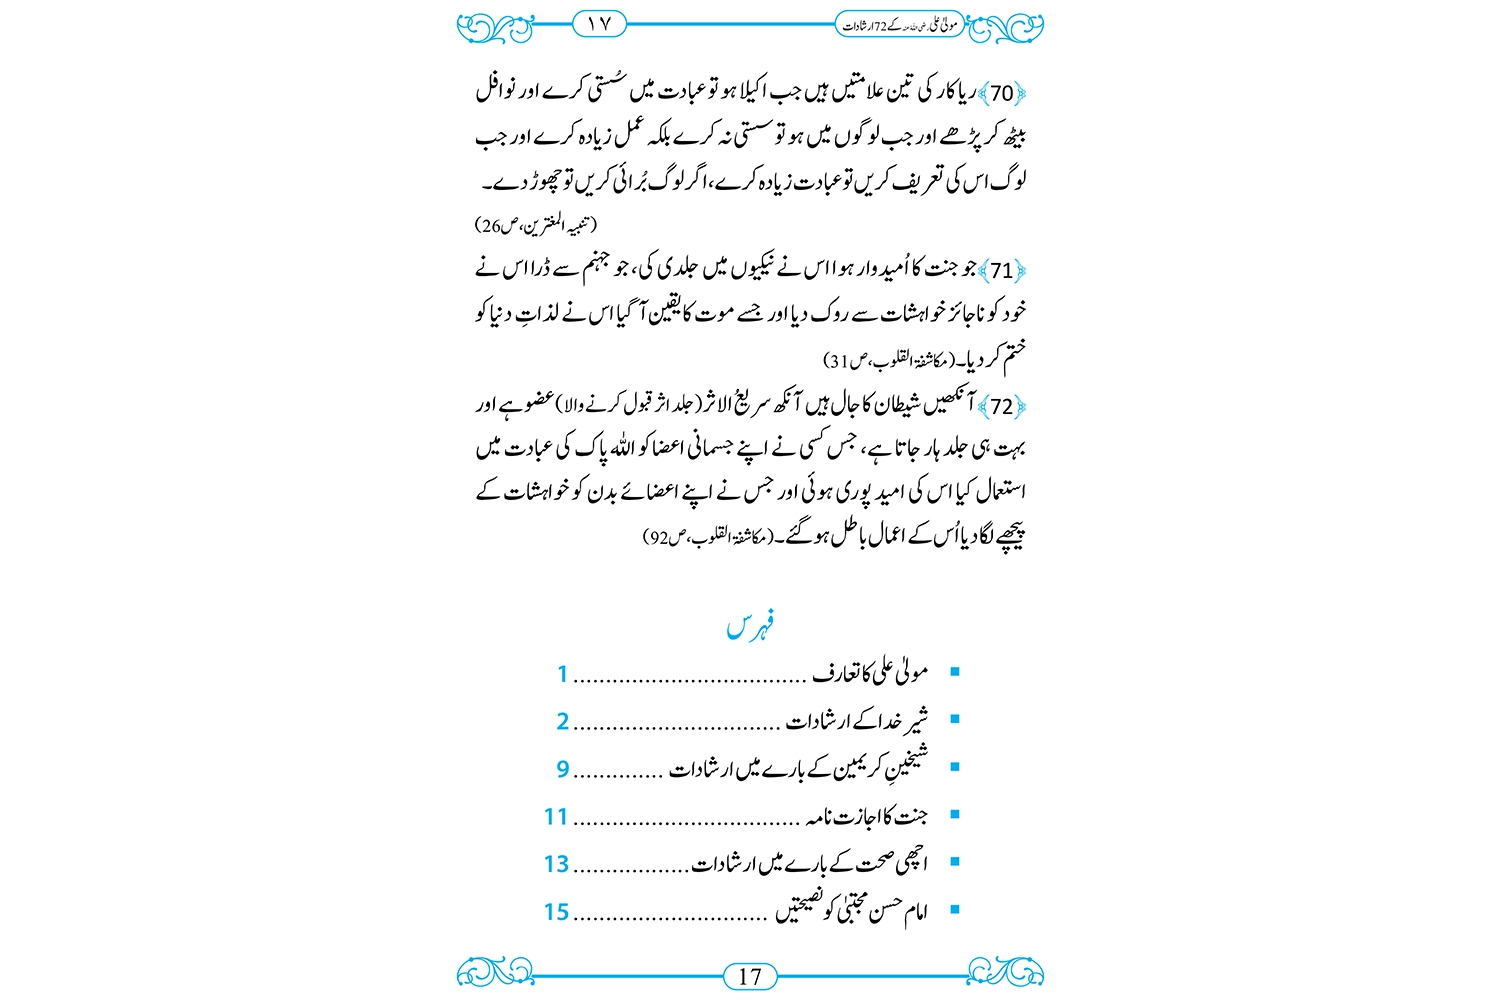 مولیٰ علی رضی اللہ عنہ کے 72 ارشادات
۱۷
﴿70﴾ ریاکار کی تین علامتیں ہیں جب اکیلا ہو تو عبادت میں سُستی کرے اور نوافل
بیٹھ کر پڑھے اور جب لوگوں میں ہو تو سستی نہ کرے بلکہ عمل زیادہ کرے اور جب
لوگ اس کی تعریف کریں تو عبادت زیادہ کرے، اگر لوگ بُرائی کریں تو چھوڑ دے۔
(تنبیہ المغترین، ص26)
﴿71﴾ جو جنت کا اُمیدوار ہوا اس نے نیکیوں میں جلدی کی، جو جہنم سے ڈرا اس نے
خود کو ناجائز خواہشات سے روک دیا اور جسے موت کا یقین آ گیا اس نے لذاتِ دنیا کو
ختم کر دیا۔ (مکاشفۃ القلوب، ص31)
﴿72﴾ آنکھیں شیطان کا جال ہیں آنکھ سریعُ الاثر (جلد اثر قبول کرنے والا) عضو ہے اور
بہت ہی جلد ہار جاتا ہے، جس کسی نے اپنے جسمانی اعضا کو اللہ پاک کی عبادت میں
استعمال کیا اس کی امید پوری ہوئی اور جس نے اپنے اعضائے بدن کو خواہشات کے
پیچھے لگا دیا اُس کے اعمال باطل ہو گئے۔ (مکاشفۃ القلوب، ص92)
فہرس
▪ مولیٰ علی کا تعارف .................................... 1
▪ شیرِ خدا کے ارشادات ................................ 2
▪ شیخینِ کریمین کے بارے میں ارشادات .............. 9
▪ جنت کا اجازت نامہ ................................... 11
▪ اچھی صحت کے بارے میں ارشادات .................. 13
▪ امام حسن مجتبیٰ کو نصیحتیں .............................. 15
17